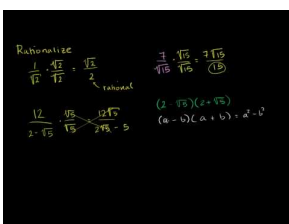 Rationalize
1/√2 · √2/√2 = √2/2
rational
7/√15 · √15/√15 = 7√15/15
12/(2-√5) · √5/√5 12√5/(2√5 - 5)
(2 - √5)(2 + √5)
(a - b)(a + b) = a² - b²